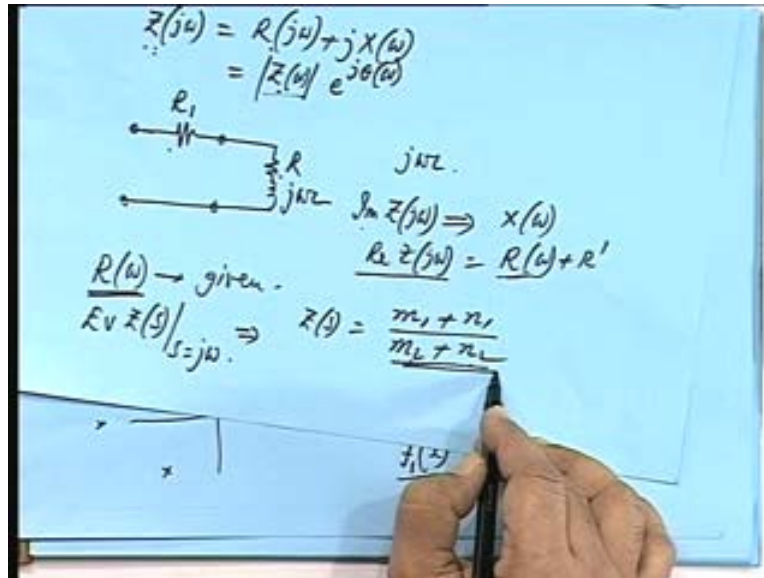 Z(jω) = R(jω) + j X(ω)
= |Z(ω)| e^{jθ(ω)}
R₁
R
jωL
jωL.
Im Z(jω) ⇒ X(ω)
Re Z(jω) = R(ω) + R'
R(ω) → given.
Ev Z(s)|_{s=jω.} ⇒ Z(s) = \frac{m₁ + n₁}{m₂ + n₂}
x
x
f₁(x)